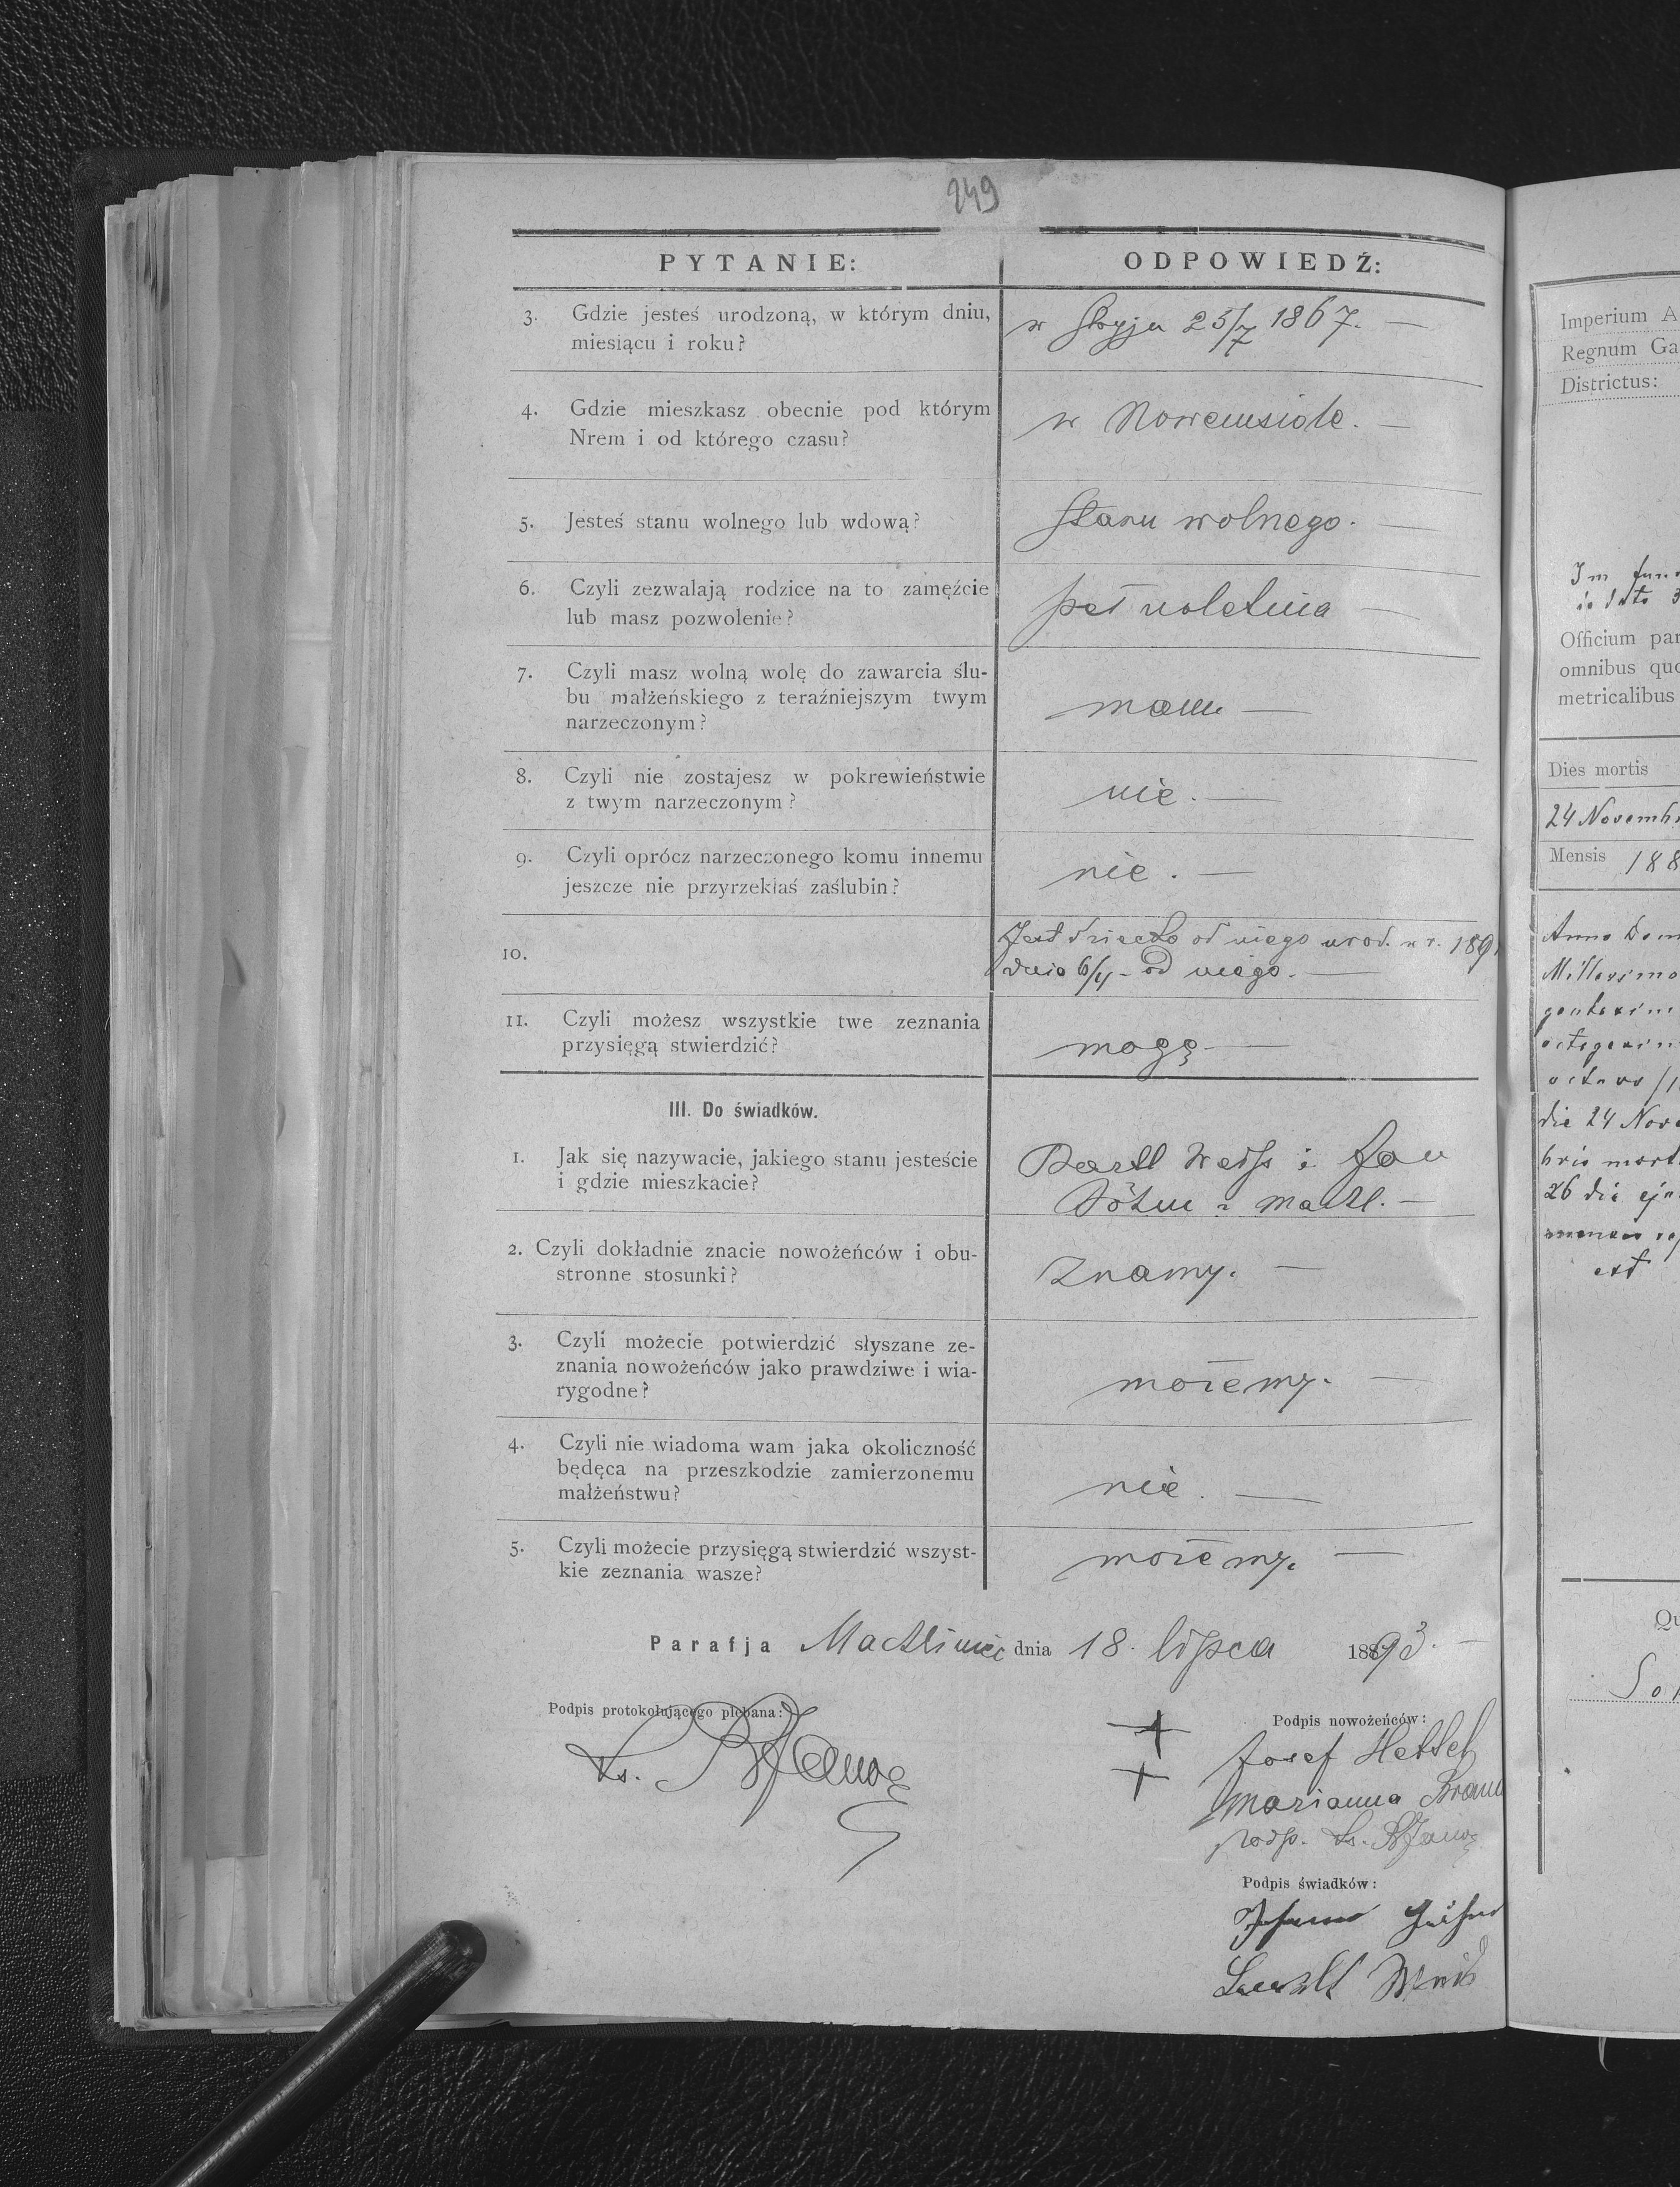 249
PYTANIE: ODPOWIEDŹ:
3. Gdzie jesteś urodzoną, w którym dniu,
miesiącu i roku?
w Stryju 23/7 1867. —
4. Gdzie mieszkasz obecnie pod którym
Nrem i od którego czasu?
w Nowemsiole. —
5. Jesteś stanu wolnego lub wdową?
Stanu wolnego. —
6. Czyli zezwalają rodzice na to zamęźcie
lub masz pozwolenie?
pełnoletnia —
7. Czyli masz wolną wolę do zawarcia ślu-
bu małżeńskiego z teraźniejszym twym
narzeczonym?
mam —
8. Czyli nie zostajesz w pokrewieństwie
z twym narzeczonym?
nie. —
9. Czyli oprócz narzeczonego komu innemu
jeszcze nie przyrzekłaś zaślubin?
nie. —
10.
Jest dziecko od niego urod. w r. 1891
dnia 6/4 - od niego. —
11. Czyli możesz wszystkie twe zeznania
przysięgą stwierdzić?
mogę —
III. Do świadków.
1. Jak się nazywacie, jakiego stanu jesteście
i gdzie mieszkacie?
Weiss i Jan
z Machl. —
2. Czyli dokładnie znacie nowożeńców i obu-
stronne stosunki?
Znamy. —
3. Czyli możecie potwierdzić słyszane ze-
znania nowożeńców jako prawdziwe i wia-
rygodne?
możemy. —
4. Czyli nie wiadoma wam jaka okoliczność
będęca na przeszkodzie zamierzonemu
małżeństwu?
nie. —
5. Czyli możecie przysięgą stwierdzić wszyst-
kie zeznania wasze?
możemy. —
Parafja Machliniec dnia 18. lipca 1893. —
Podpis protokołującego plebana:
Ks.
Podpis nowożeńców:
+ Josef
+ Marianna
podp. Ks.
Podpis świadków:
Imperium A
Regnum Ga
Districtus:
Officium par
omnibus quo
metricalibus
Dies mortis
24 Novemb
Mensis 188
Anno Dom
Millesimo
gentesim
octogesim
octavo
die 24 Nove
bris mort
26 die
est
Qu